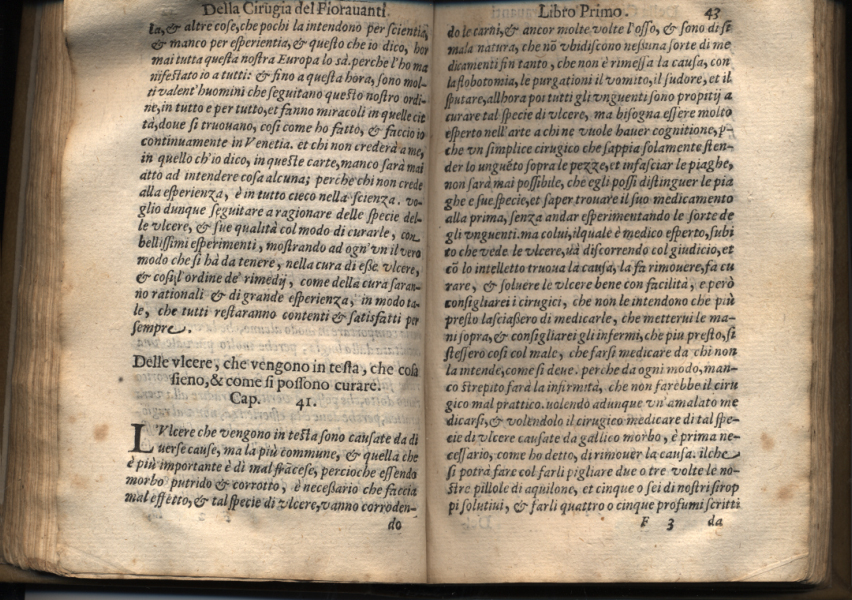 Della Cirugia del Fiorauanti.
la, & altre cose, che pochi la intendono per scientia,
& manco per esperientia, & questo che io dico, hor
mai tutta questa nostra Europa lo sà. perche l'ho ma
nifestato io a tutti: & fino a questa hora, sono mol-
ti valent'huomini che seguitano questo nostro ordi-
ne, in tutto e per tutto, et fanno miracoli in quelle cit
tà, doue si truouano, cosi come ho fatto, & faccio io
continuamente in Venetia. et chi non crederà a me,
in quello ch'io dico, in queste carte, manco sarà mai
atto ad intendere cosa alcuna; perche chi non crede
alla esperienza, è in tutto cieco nella scienza. vo-
glio dunque seguitare a ragionare delle specie del-
le vlcere, & sue qualità col modo di curarle, con
bellissimi esperimenti, mostrando ad ogn'vn il vero
modo che si hà da tenere, nella cura di esse vlcere,
& cosi l'ordine de' rimedij, come della cura saran-
no rationali & di grande esperienza, in modo ta-
le, che tutti restaranno contenti & satisfatti per
sempre.
Delle vlcere, che vengono in testa, che cosa
sieno, & come si possono curare.
Cap. 41.
L'Vlcere che vengono in testa sono causate da di
uerse cause, ma la più commune, & quella che
è più importante è di mal frācese, percioche essendo
morbo putrido & corrotto, è necessario che faccia
mal effetto, & tal specie di vlcere, vanno corroden-
do
Libro Primo. 43
do le carni, & ancor molte volte l'osso, & sono di sì
mala natura, che nō vbidiscono nessuna sorte di me
dicamenti fin tanto, che non è rimessa la causa, con
la flobotomia, le purgationi il vomito, il sudore, et il
sputare, allhora poi tutti gli vnguenti sono propitij a
curare tal specie di vlcere, ma bisogna essere molto
esperto nell'arte a chi ne vuole hauer cognitione, p-
che vn simplice cirugico che sappia solamente sten-
der lo unguēto sopra le pezze, et infasciar le piaghe,
non sarà mai possibile, che egli possi distinguer le pia
ghe e sue specie, et saper trouare il suo medicamento
alla prima, senza andar esperimentando le sorte de
gli vnguenti. ma colui, ilquale è medico esperto, subi
to che vede le vlcere, uà discorrendo col giudicio, et
cō lo intelletto truoua la causa, la fa rimouere, fa cu
rare, & soluere le vlcere bene con facilità, e però
consigliarei i cirugici, che non le intendono che più
presto lasciassero di medicarle, che metterui le ma-
ni sopra, & consigliarei gli infermi, che piu presto, si
stessero cosi col male, che farsi medicare da chi non
la intende, come si deue. perche da ogni modo, man-
co strepito farà la infirmità, che non farebbe il ciru
gico mal prattico. uolendo adunque vn'amalato me
dicarsi, & volendolo il cirugico medicare di tal spe-
cie di vlcere causate da gallico morbo, è prima ne-
cessario, come ho detto, di rimouer la causa. ilche
si potrà fare col farli pigliare due o tre volte le no-
stre pillole di aquilone, et cinque o sei di nostri sirop
pi solutiui, & farli quattro o cinque profumi scritti
F 3 da